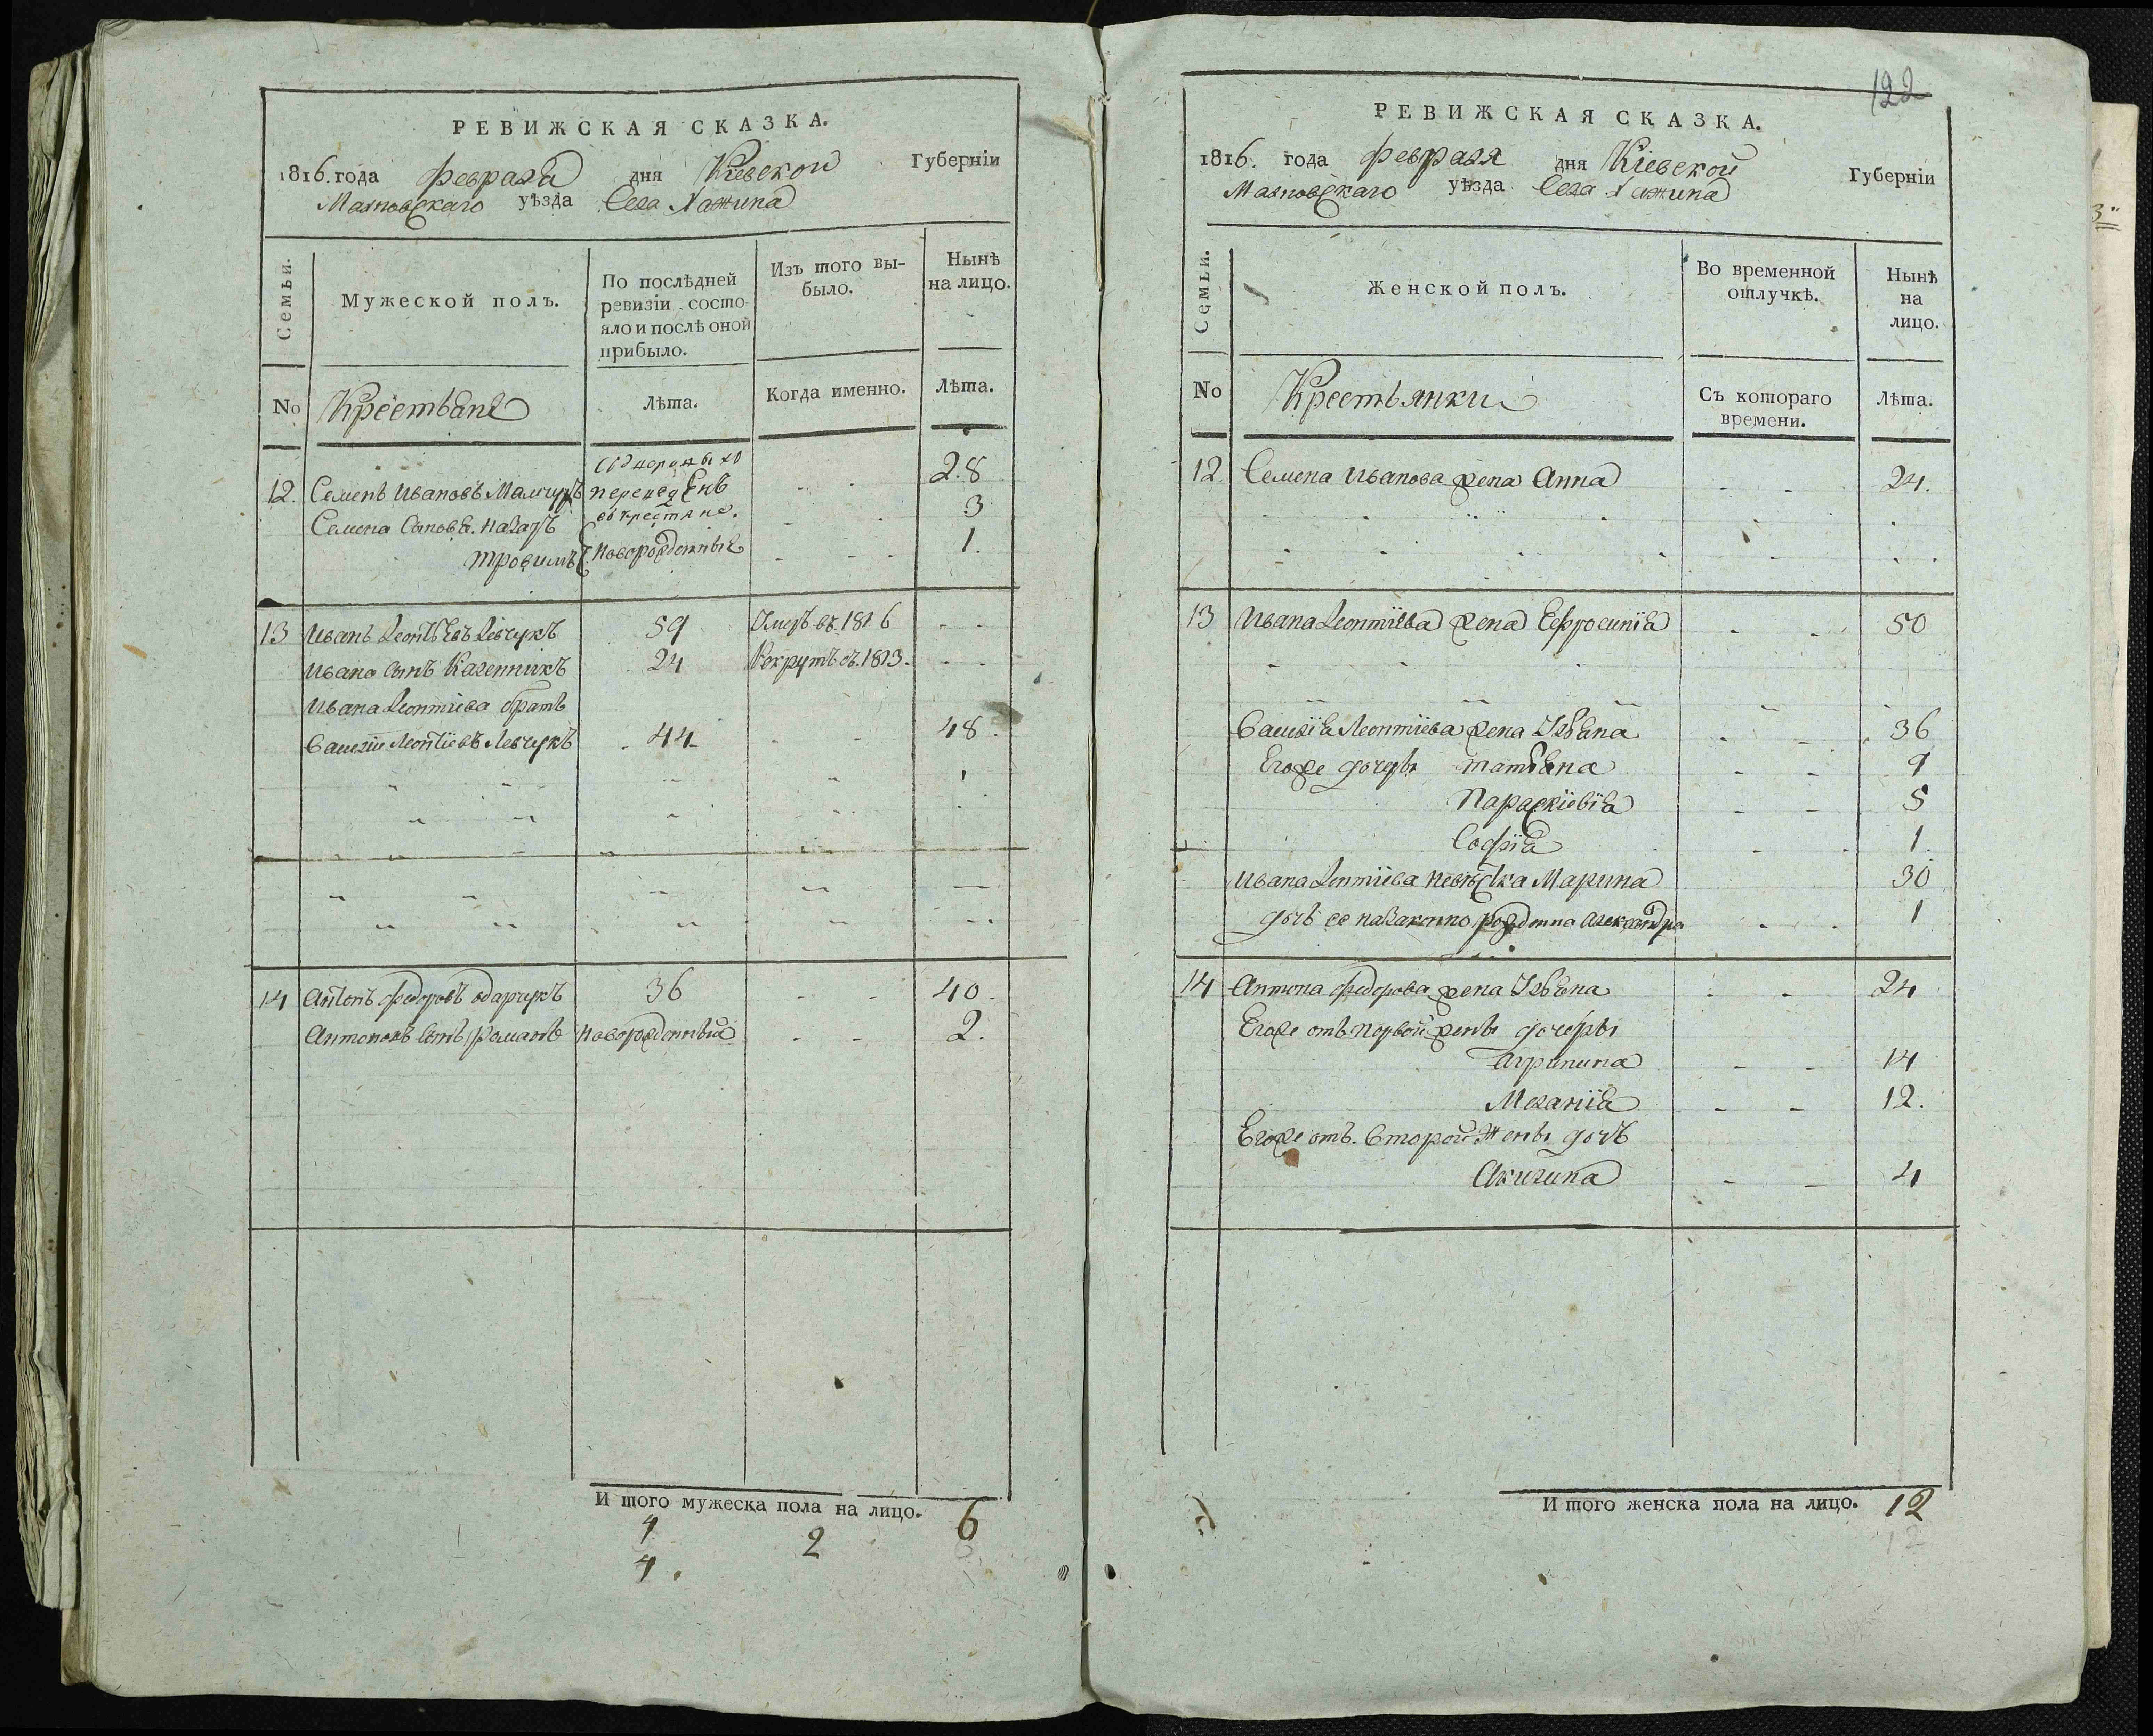 РЕВИЖСКАЯ СКАЗКА.
1816. года февраля дня Кіевской Губерніи
Махновскаго уѣзда Села Хажина
Семьи.
Мужеской полъ.
По послѣдней
ревизіи состо-
яло и послѣ оной
прибыло.
Изъ того вы-
было.
Нынѣ
на лицо.
No
Крестьяне
Лѣта.
Когда именно.
Лѣта.
12. Семенъ Ивановъ переведенъ 28
Семена Сыновья. Назаръ 3
Трофимъ новорожденные 1.
13 Иванъ Левчукъ 59 Умеръ въ. 1816
Ивана Сынъ 24 Рекрутъ въ. 1813.
Ивана Леонтіева братъ
Василій Леонтіевъ Левчукъ 44 48.
14 Антонъ федоровъ одарчукъ 36 40.
Антоновъ Сынъ романъ новорожденный 2.
И того мужеска пола на лицо. 6
4 2
4.
122
РЕВИЖСКАЯ СКАЗКА.
1816. года февраля дня Кіевской Губерніи
Махновскаго уѣзда Села Хажина
Семьи.
Женской полъ.
Во временной
отлучкѣ.
Нынѣ
на
лицо.
No
Крестьянки
Съ котораго
времени.
Лѣта.
12. Семена Иванова жена Анна 24.
13 Ивана Леонтіева жена Ефросинія 50
Василія Леонтіева жена Ульяна 36
Егоже дочеры татьяна 9
Параскіевія 5
Софія 1.
Ивана Леонтіева невѣстка Марина 30
дочь ее Александра 1
14 Антона федорова жена Ульяна 24
Егоже отъ первой жены дочеры
агрипина 14
Меланія 12.
Егоже отъ. второй жены дочь
Акилина 4
И того женска пола на лицо. 12